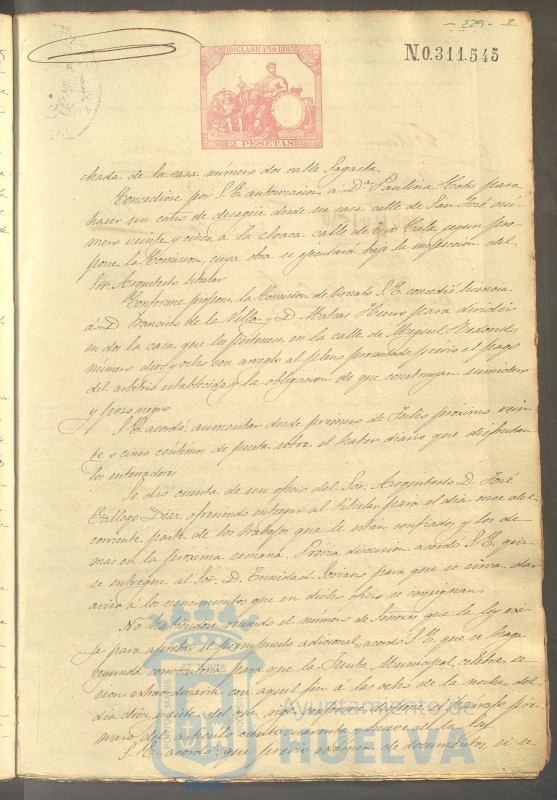 - 229 - 1
N.0.311.545
10ª CLASE AÑO 1883
2 PESETAS
chada de la casa número dos calle Sagasta
Concedióse por S.E. autorizacion á Dª Paulina para
hacer un caño de desagüe desde su casa calle de San José nú-
mero veinte y cinco á la cloaca calle de segun pro-
pone la Comision, cuya obra se ejecutará bajo la inspeccion del
Sor. Arquitecto titular
Conforme propone la Comision de Ornato S.E. concedió licencia
á D. Francisco de la Villa y D. Matias para dividir
en dos la casa que les pertenece en la calle de Miguel Redondo
número diez y ocho con arreglo al plano presentado, previo el pago
del arbitrio establecido y la obligacion de que construyan sumidero
y pozo negro
S.E. acordó: aumentar desde primero de Julio próximo vein-
te y cinco céntimos de peseta sobre el haber diario que disfrutan
los enterradores
Se dió cuenta de un oficio del Sor. Arquitecto D. José
Gallego Diaz ofreciendo entregar al titular para el dia once del
corriente parte de los trabajos que le están confiados y los de-
mas en la próxima semana. Previa discusion acordó S.E. que
se entregue al Sor. D. Trinidad Soriano para que se sirva dar
aviso á los vencimientos que en dicho oficio se consignan
No habiéndose reunido el número de Señores que la ley exi-
je para aprobar el presupuesto adicional, acordó S.E. que se haga
segunda convocatoria para que la Junta Municipal celebre se-
sion extraordinaria con aquel fin á las ocho de la noche del
dia diez y seis del que rige, conforme dispone el párrafo pri-
mero del artículo ciento cuarenta y nueve de la ley
S.E. acordó: que previo exámen de documentos, si se
Ayuntamiento de
HUELVA